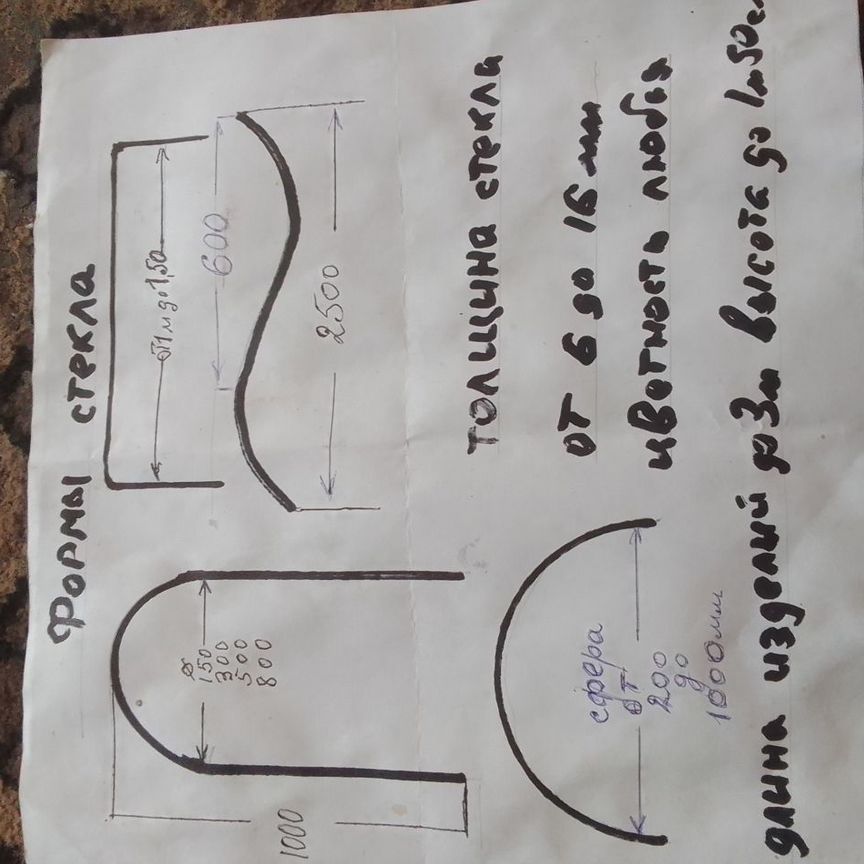 Формы стекла
от 1м до 1,50
600
2500
ø
150
300
500
800
1000
сфера
от
200
до
1000мм
толщина стекла
от 6 до 16 мм
цветность любая
длина изделий до 3м высота до 1м50см